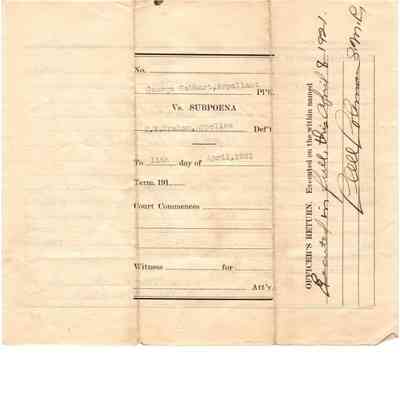 No.
George Gebhart, Appellant Pl'ff
Vs. SUBPOENA
Appellee Def't
To 11th day of April, 1921
Term, 191
Court Commences
Witness for
Att'y
OFFICER'S RETURN. Executed on the within named
Executed in full, this April 8 1921.